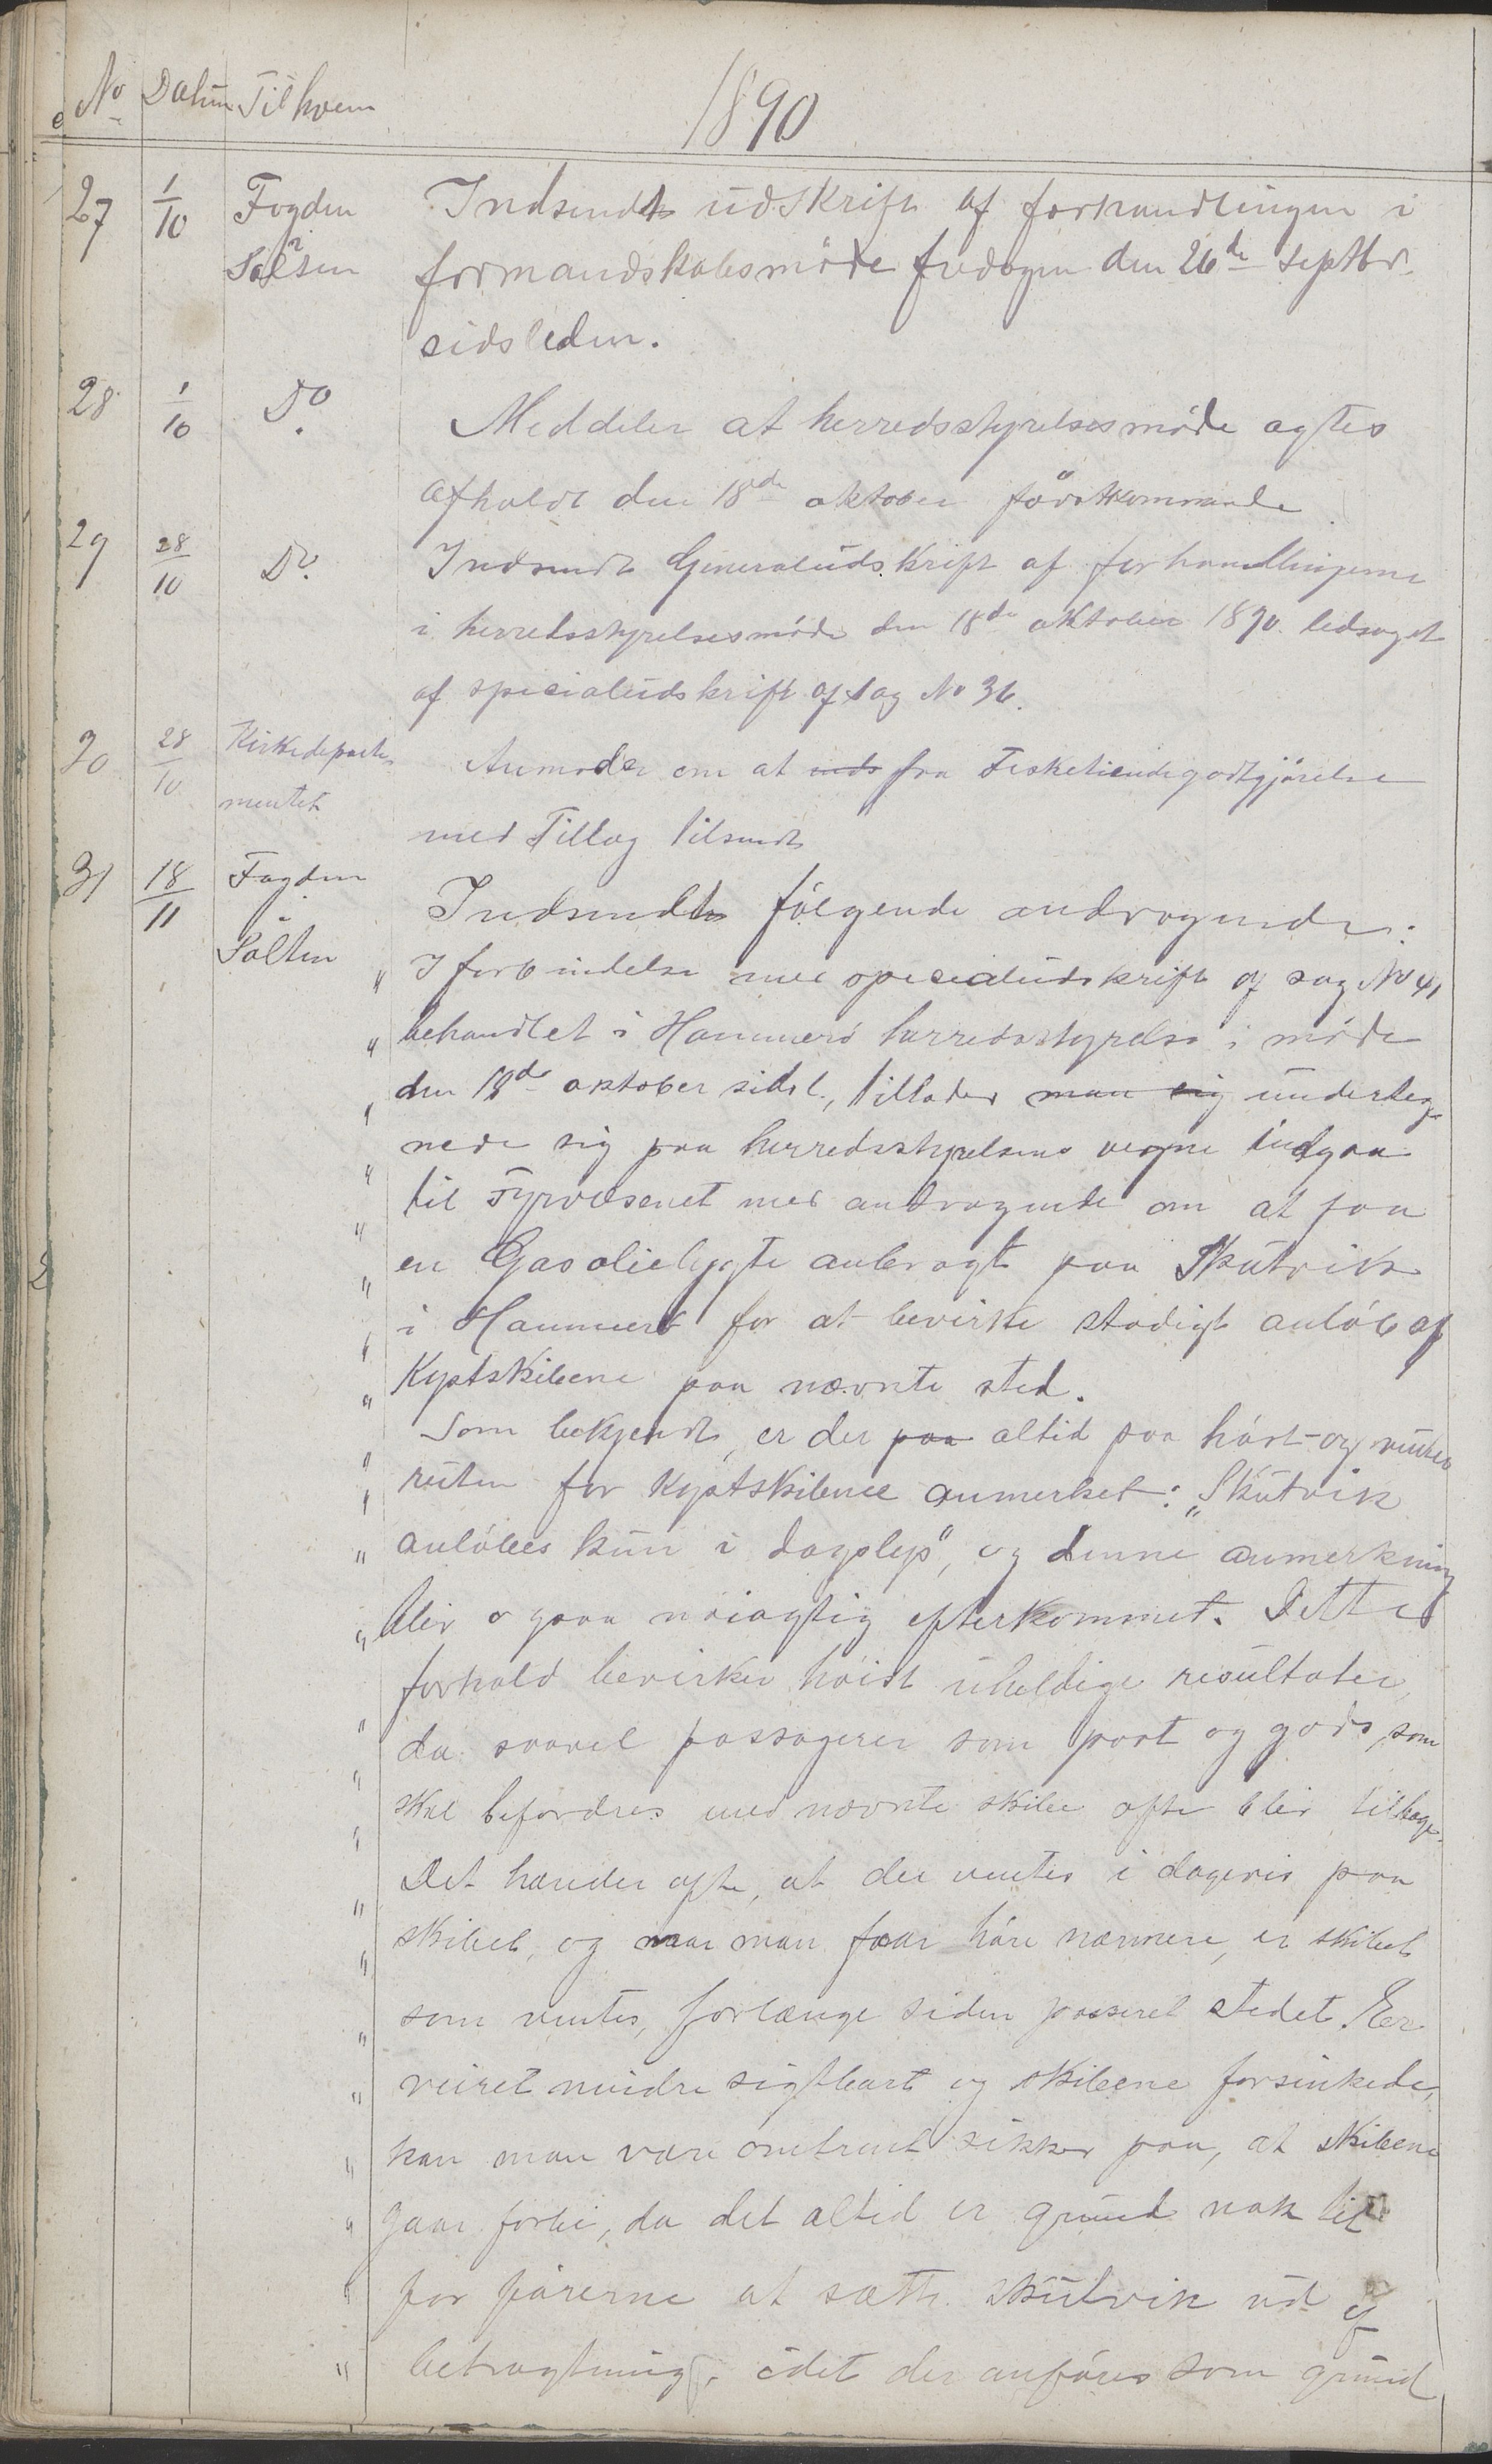 No Datum Til hvem
1890
27 1/10 Fogden i Salten Indsendt udskrift af forhandlingen i
formandskabsmöde fredagen den 26de septbr.
sidsleden.
28 1/10 Do. Meddeler at herredsstyrelsesmöde agtes
afholdt den 18de oktober förstkommende
29 28/10 Do. Indsendt Generaludskrift af forhandlingerne
i herredsstyrelsesmöde den 18de oktober 1890. ledsaget
af specialudskrift af sag No 36.
30 28/10 Kirkedepartementet Anmoder om at faa Fisketiendegodtgjörelse
med Tillæg tilsendt
31 18/11 Fogden i Salten Indsendt følgende andragende:
" I forbindelse med specialudskrift af sag No 41
" behandlet i Hammerö herredsstyrelse i möde
" den 18de oktober sidstl., tillader man sig underteg-
" nede sig paa herredsstyrelsens vegne indgaa
" til Fyrvæsenet med andragende om at faa
" en Gasolielygte anbragt paa Skutvik
" i Hammerö for at bevirke stadigt anlöb af
" Kystskibene paa nævnte sted.
" Som bekjendt, er der paa altid paa höst- og vinter
" ruten for Kystskibene anmerket: „Skutvik
" anlöbes kun i dagslys", og denne anmerkning
" blir ogsaa nöiagtig efterkommet. Dette
" forhold bevirker höist uheldige resultater,
" da saavel passagerer som post og gods, som
" skal befordres med nævnte skibe ofte blir tilbage.
" Det hænder ofte, at der ventes i dagevis paa
" skibet, og naar man faar höre nærmere, er skibet
" som ventes, forlænge siden passeret stedet. Er
" veiret mindre sigtbart og skibene forsinkede,
" kan man være omtrent sikker paa, at skibene
" gaar forbi, da det altid er grund nok til
" for förerne at sætte Skutvik ud af
" betragtning, idet der anföres som grund